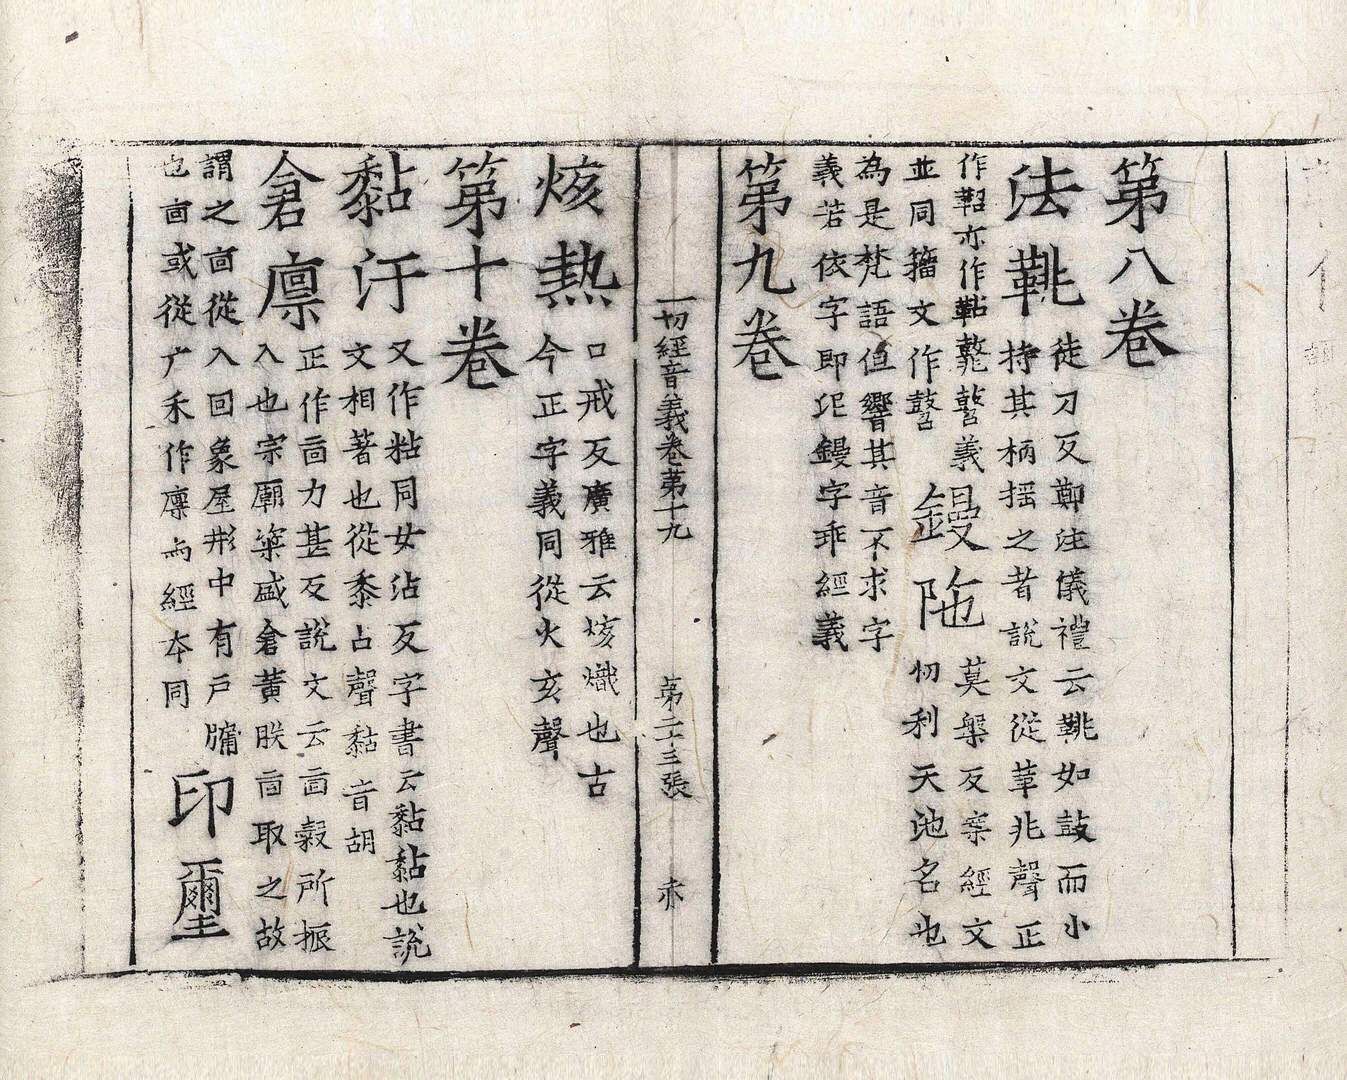 第八卷
法鞉
徒刀反鄭注儀禮云鞉如鼓而小
持其柄揺之者說文從革兆聲正
作鞀亦作䩦鼗鼛義
並同籀文作鼛
鏝陁
莫槃反案經文
忉利天池名也
為是梵語但響其音不求字
義若依字即泥鏝字乖經義
第九卷
一切經音義卷第十九
第二十三張
𤈦熱
口戒反廣雅云𤈦熾也古
今正字義同從火亥聲
第十卷
黏汙
又作粘同女沾反字書云黏黏也說
文相著也從黍占聲黏音胡
倉廩
正作㐭力甚反說文云㐭穀所振
入也宗廟粢盛倉黃㐭取之故
謂之㐭從入回象屋形中有戶牖
也㐭或從广禾作廩与經本同
印壐